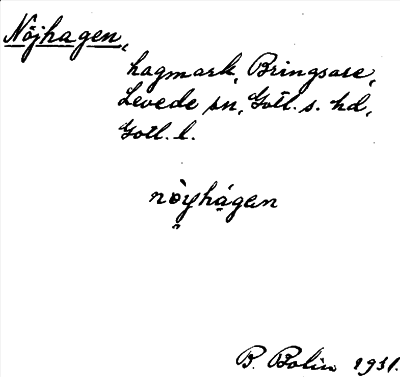 Nöjhagen,
hagmark, Bringsare,
Levede sn, Gotl. s. hd,
Gotl. l.
nòyhágen
B. Bolin 1931.